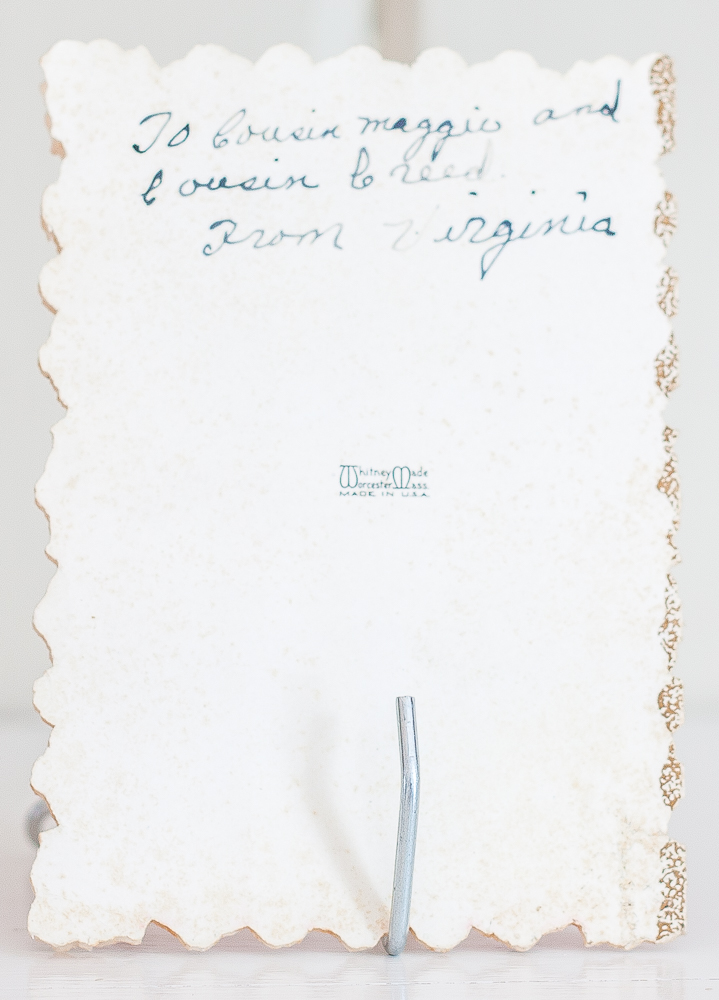 To Cousin maggie and
Cousin Creed.
From Virginia
Whitney Made
Worcester Mass.
MADE IN U.S.A.